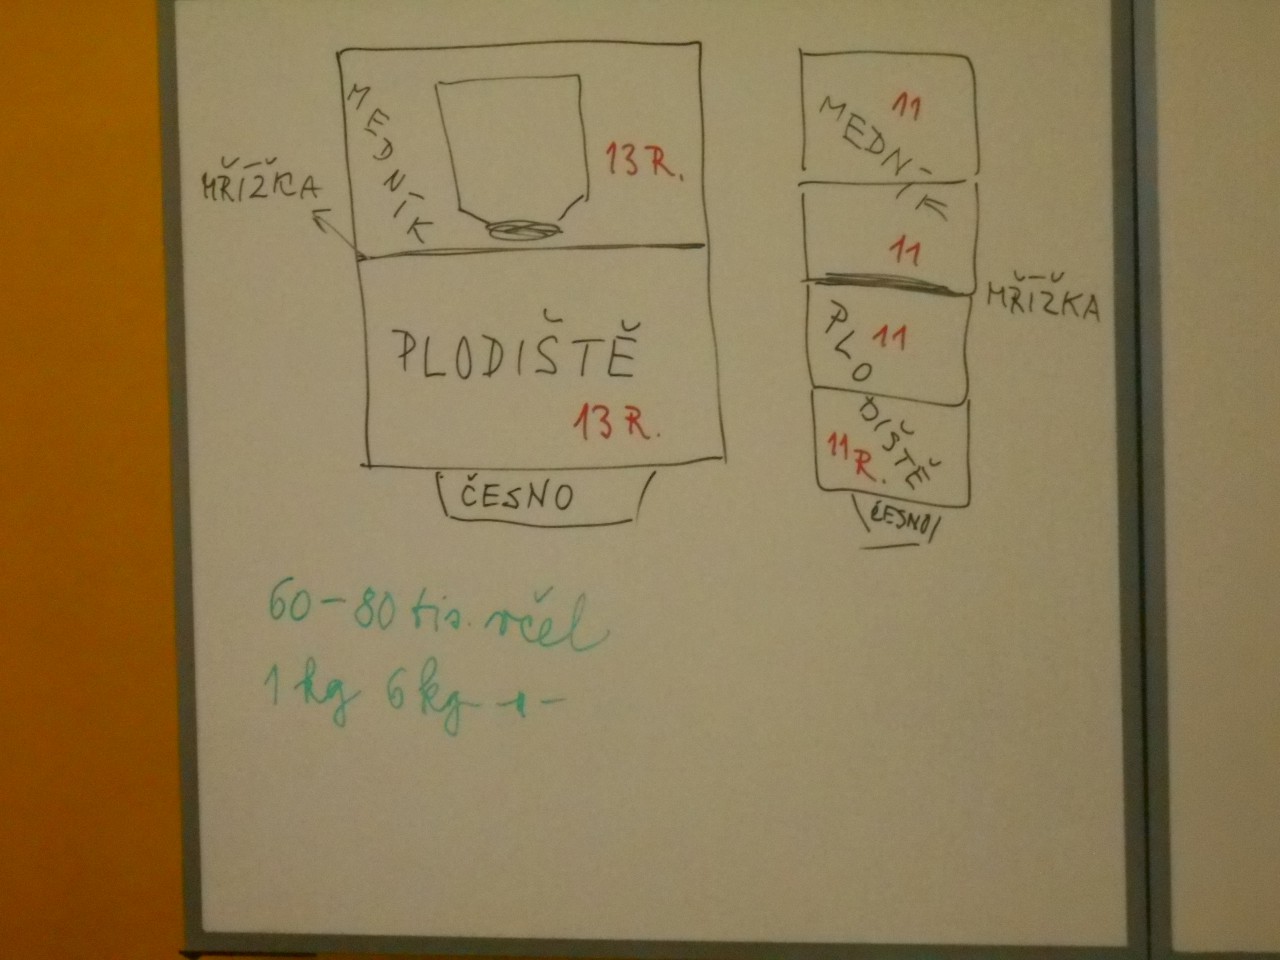 MEDNÍK
13 R.
MŘÍŽKA
PLODIŠTĚ
13 R.
ČESNO
11
MEDNÍK
11
MŘÍŽKA
PLO
11
DIŠTĚ
11 R.
ČESNO
60-80 tis. včel
1 kg 6 kg + -